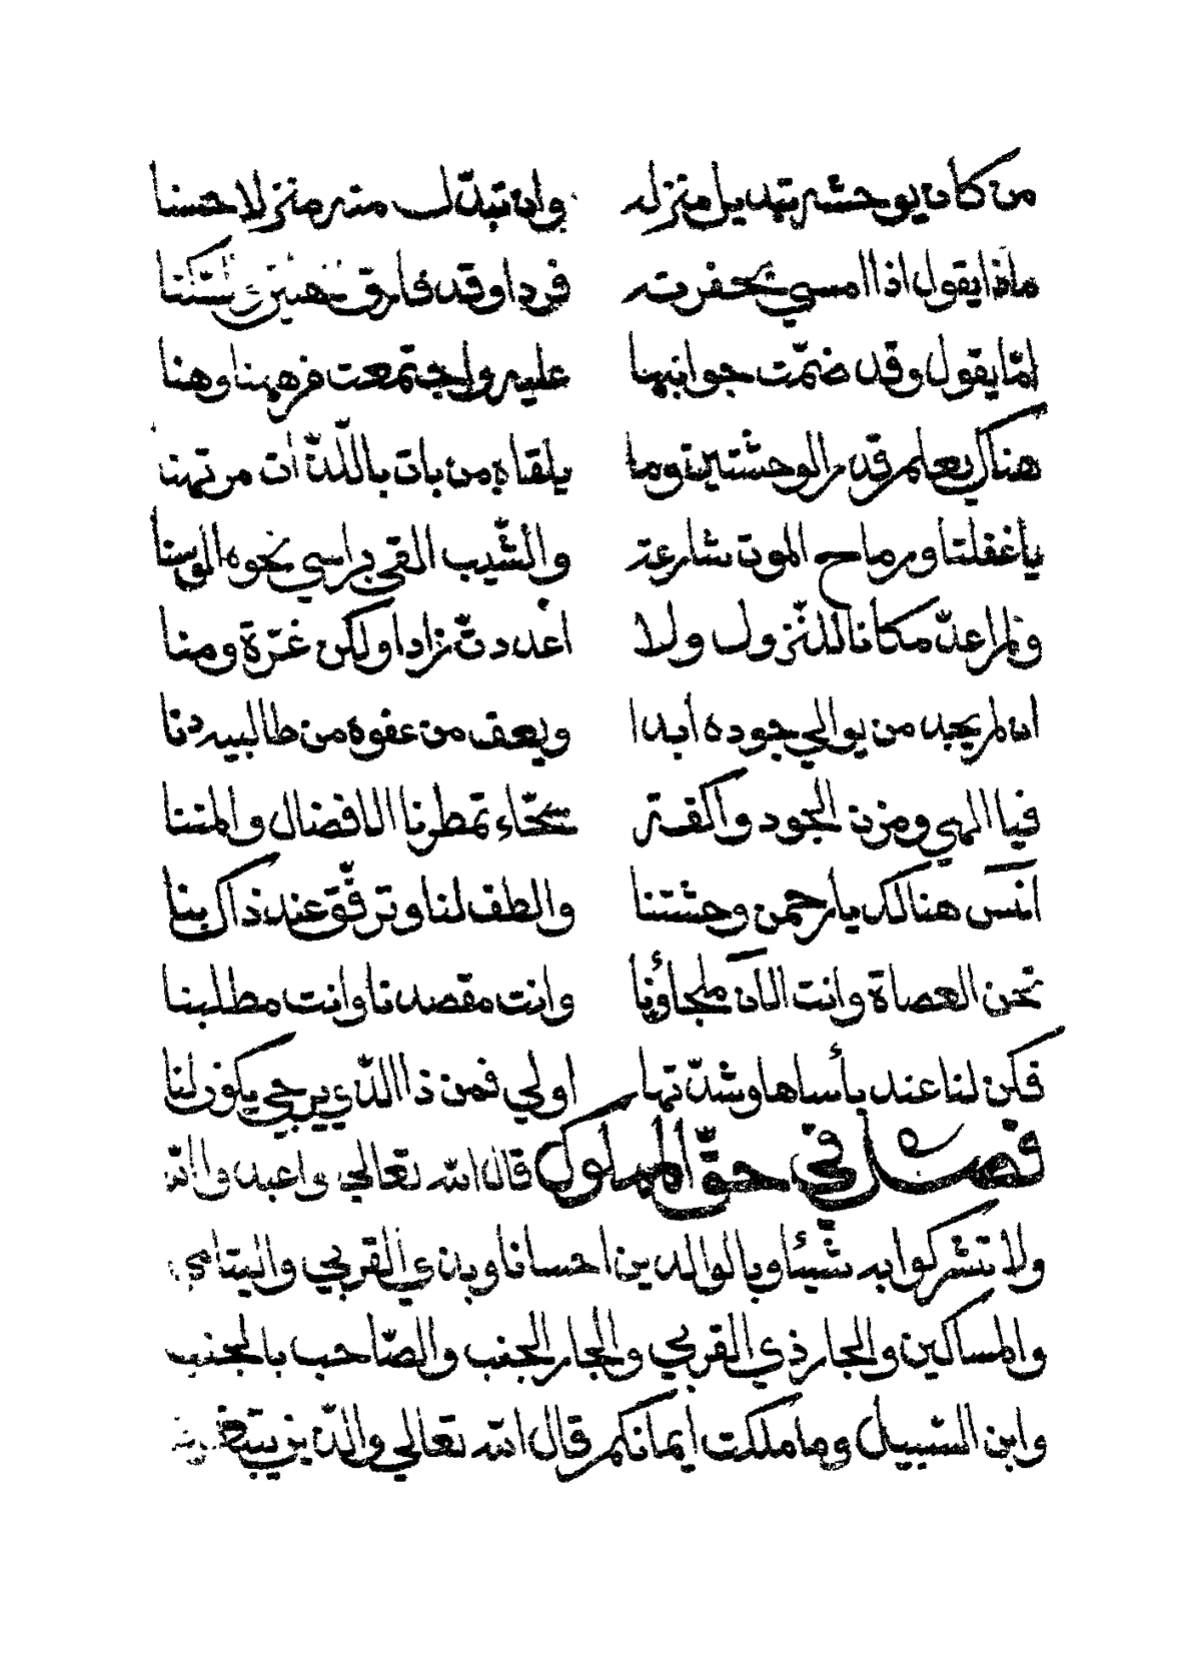 من كان يوحشه تبديل منزله وان تبدّل منه منزلا حسنا
ماذا يقول اذا امسي بحفرته فردا وقد فارق
امّا يقول وقد ضمّت جوانبها عليه واجتمعت من ههنا وهنا
هناك يعلم قدر الوحشتين وما يلقاه من بات باللّذّات مرتهنا
يا غفلتا ورماح الموت شارعة والشّيب القي براسي نحوه الوسنا
ولم اعدّ مكانا للنّزول ولا اعددتّ زادا ولكن غرّة ومنا
ان لم يجد من يوالي جوده ابدا ويعف من عفوه من طالبيه دنا
فيا الهي ومزن الجود واكفة سحّاء تمطرنا الافضال والمننا
آنس هنالك يا رحمن وحشتنا والطف لنا وترفّق عند ذاك بنا
نحن العصاة وانت الآن ملجاؤنا وانت مقصدنا وانت مطلبنا
فكن لنا عند بأساها وشدّتها اولي فمن ذا الّذي يرجي يكون لنا
فصل في حقّ المملوك قال الله تعالي واعبدوا الله
ولا تشركوا به شيئا وبالوالدين احسانا وبذي القربي واليتامي
والمساكين والجار ذي القربي والجار الجنب والصّاحب بالجنب
وابن السّبيل وما ملكت ايمانكم قال الله تعالي والّذين